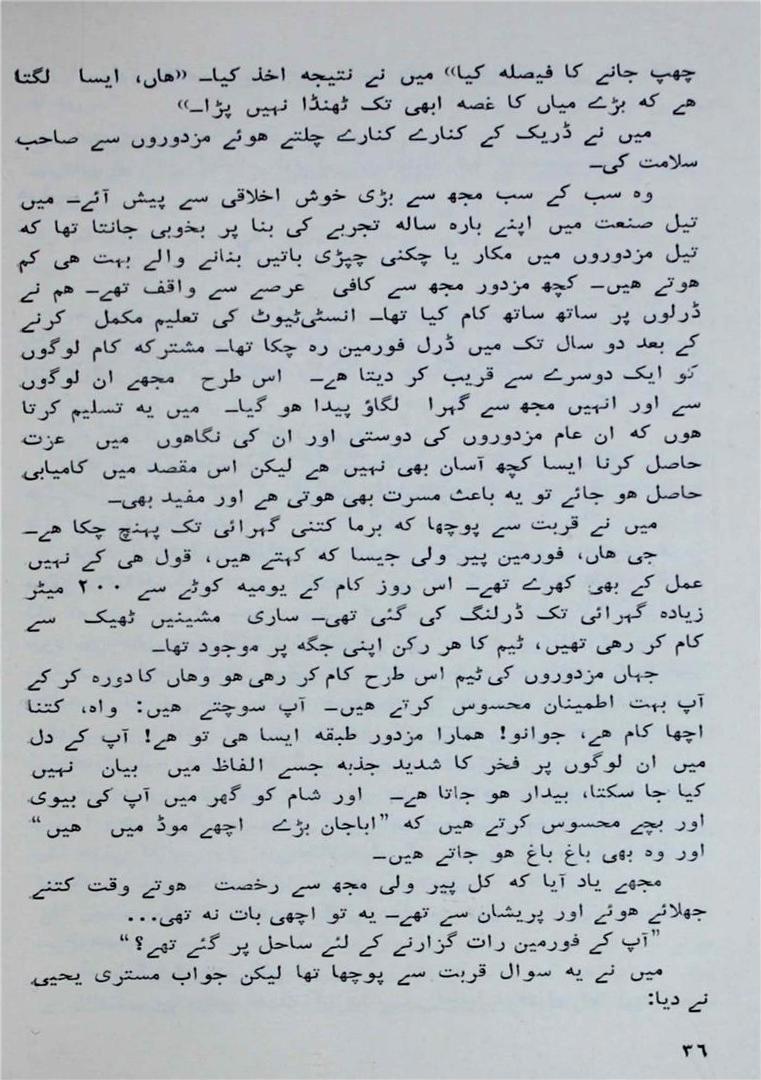 چھپ جانے کا فیصله کیا» میں نے نتیجه اخذ کیا۔ «ھاں، ایسا لگتا
ھے که بڑے میاں کا غصه ابھی تک ٹھنڈا نہیں پڑا۔»
میں نے ڈریک کے کنارے کنارے چلتے ھوئے مزدوروں سے صاحب
سلامت کی۔
وہ سب کے سب مجھ سے بڑی خوش اخلاقی سے پیش آئے۔ میں
تیل صنعت میں اپنے بارہ ساله تجربے کی بنا پر بخوبی جانتا تھا که
تیل مزدوروں میں مکار یا چکنی چپڑی باتیں بنانے والے بہت ھی کم
ھوتے ھیں۔ کچھ مزدور مجھ سے کافی عرصے سے واقف تھے۔ ھم نے
ڈرلوں پر ساتھ ساتھ کام کیا تھا۔ انسٹیٹیوٹ کی تعلیم مکمل کرنے
کے بعد دو سال تک میں ڈرل فورمین رہ چکا تھا۔ مشترکه کام لوگوں
کو ایک دوسرے سے قریب کر دیتا ھے۔ اس طرح مجھے ان لوگوں
سے اور انہیں مجھ سے گہرا لگاؤ پیدا ھو گیا۔ میں یه تسلیم کرتا
ھوں که ان عام مزدوروں کی دوستی اور ان کی نگاھوں میں عزت
حاصل کرنا ایسا کچھ آسان بھی نہیں ھے لیکن اس مقصد میں کامیابی
حاصل ھو جائے تو یه باعث مسرت بھی ھوتی ھے اور مفید بھی۔
میں نے قربت سے پوچھا که برما کتنی گہرائی تک پہنچ چکا ھے۔
جی ھاں، فورمین پیر ولی جیسا که کہتے ھیں، قول ھی کے نہیں
عمل کے بھی کھرے تھے۔ اس روز کام کے یومیه کوٹے سے ۲۰۰ میٹر
زیادہ گہرائی تک ڈرلنگ کی گئی تھی۔ ساری مشینیں ٹھیک سے
کام کر رھی تھیں، ٹیم کا ھر رکن اپنی جگه پر موجود تھا۔
جہاں مزدوروں کی ٹیم اس طرح کام کر رھی ھو وھاں کا دورہ کر کے
آپ بہت اطمینان محسوس کرتے ھیں۔ آپ سوچتے ھیں: واہ، کتنا
اچھا کام ھے، جوانو! ھمارا مزدور طبقه ایسا ھی تو ھے! آپ کے دل
میں ان لوگوں پر فخر کا شدید جذبه جسے الفاظ میں بیان نہیں
کیا جا سکتا، بیدار ھو جاتا ھے۔ اور شام کو گھر میں آپ کی بیوی
اور بچے محسوس کرتے ھیں که ”اباجان بڑے اچھے موڈ میں ھیں“
اور وہ بھی باغ باغ ھو جاتے ھیں۔
مجھے یاد آیا که کل پیر ولی مجھ سے رخصت ھوتے وقت کتنے
جھلائے ھوئے اور پریشان سے تھے۔ یه تو اچھی بات نه تھی...
”آپ کے فورمین رات گزارنے کے لئے ساحل پر گئے تھے؟“
میں نے یه سوال قربت سے پوچھا تھا لیکن جواب مستری یحیی
نے دیا:
۳٦